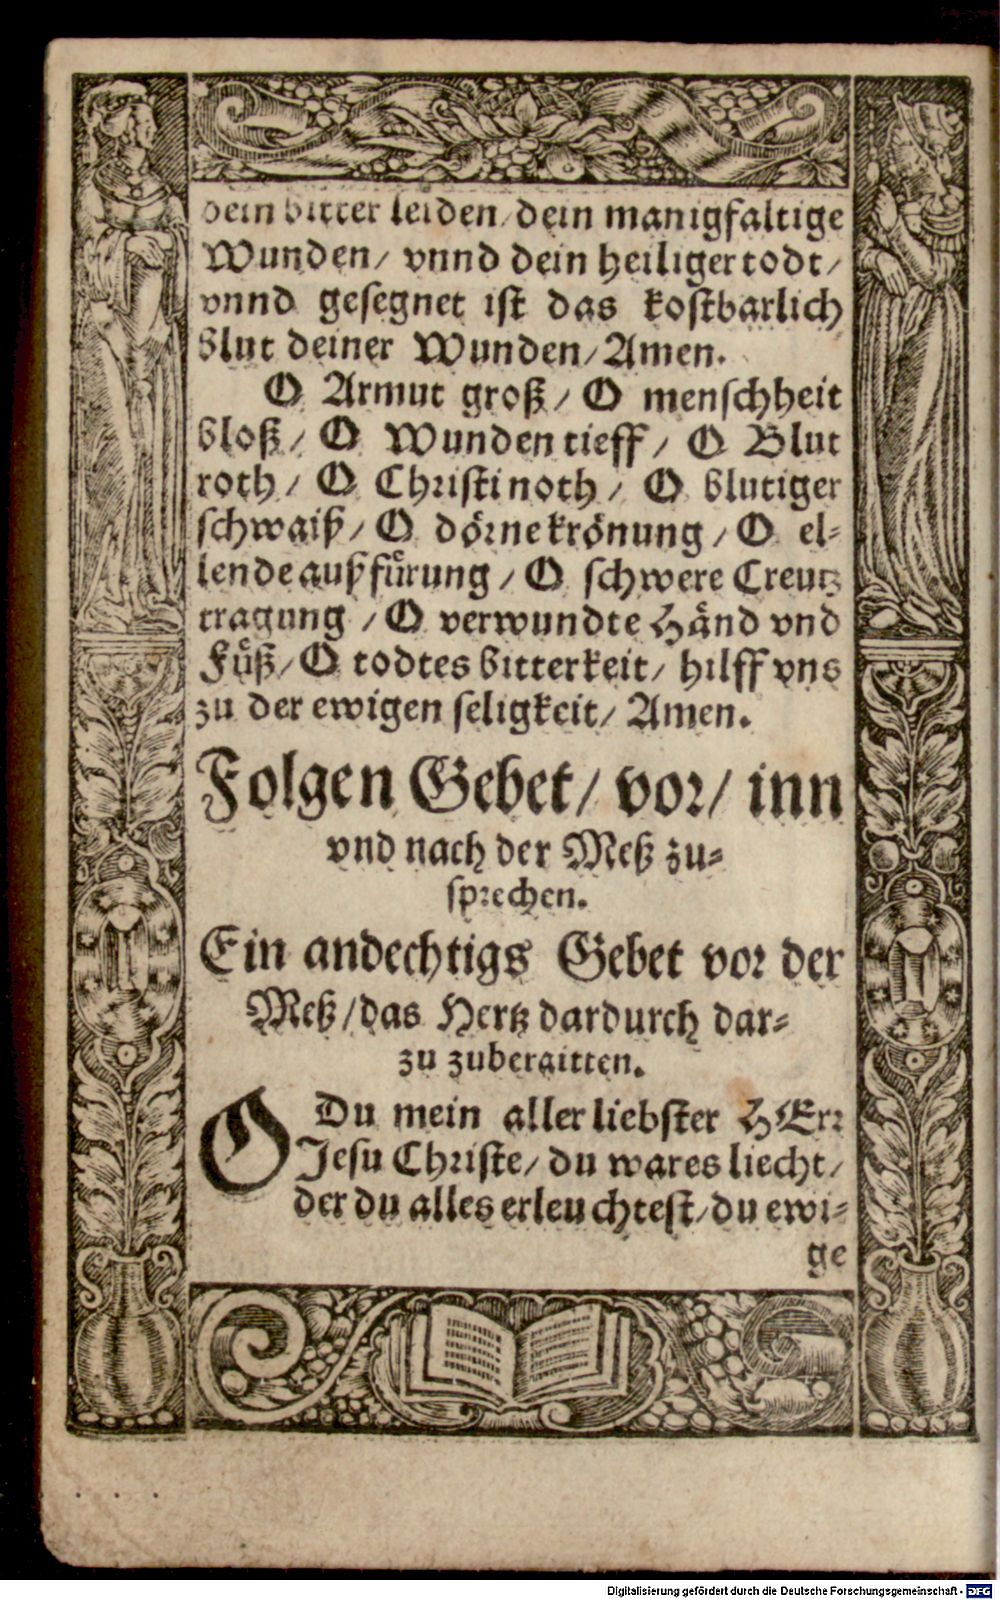 dein bitter leiden/ dein manigfaltige
Wunden/ vnnd dein heiliger todt/
vnnd gesegnet ist das kostbarlich
blut deiner Wunden/ Amen.
O Armut groß/ O menschheit
bloß/ O Wunden tieff/ O Blut
roth/ O Christi noth/ O blutiger
schwaiß/ O dörne krönung/ O el-
lende außfuͤrung/ O schwere Creutz
tragung/ O verwundte Haͤnd vnd
Fuͤß/ O todtes bitterkeit/ hilff vns
zu der ewigen seligkeit/ Amen.
Folgen Gebet/ vor/ inn
vnd nach der Meß zu-
sprechen.
Ein andechtigs Gebet vor der
Meß/ das Hertz dardurch dar-
zu zuberaitten.
O Du mein aller liebster HErr
Jesu Christe/ du wares liecht/
der du alles erleuchtest/ du ewi-
ge
Digitalisierung gefördert durch die Deutsche Forschungsgemeinschaft - DFG